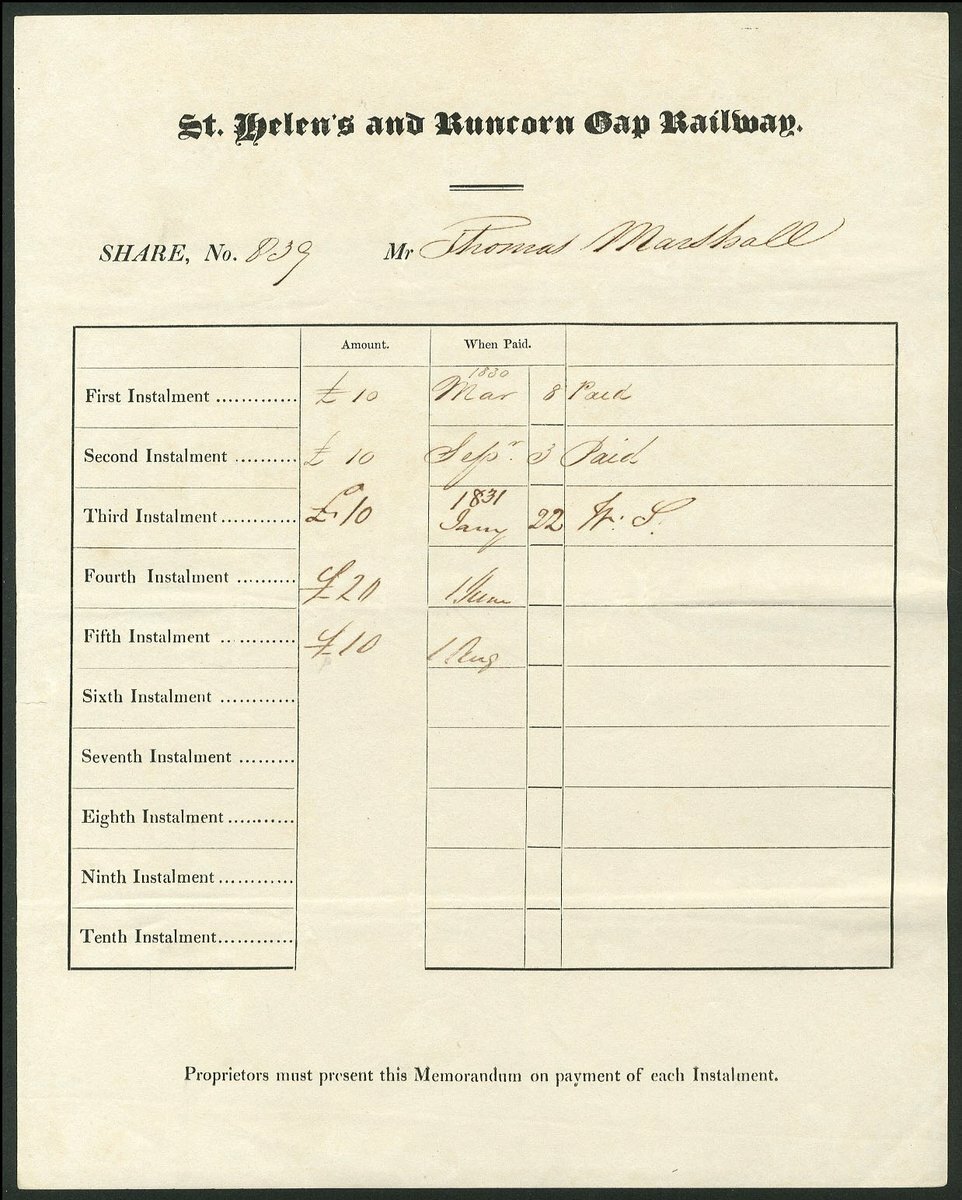 St. Helen's and Runcorn Gap Railway.
SHARE, No. 839 Mr Thomas Marshall
Amount. When Paid.
1830
First Instalment ............. £ 10 Mar 8 Paid
Second Instalment .......... £ 10 Sepr. 3 Paid
1831
Third Instalment ............ £10 Jany 22 W. S.
Fourth Instalment .......... £20 1 June
Fifth Instalment ............ £10 1 Aug
Sixth Instalment ............
Seventh Instalment .........
Eighth Instalment ...........
Ninth Instalment ............
Tenth Instalment.............
Proprietors must present this Memorandum on payment of each Instalment.